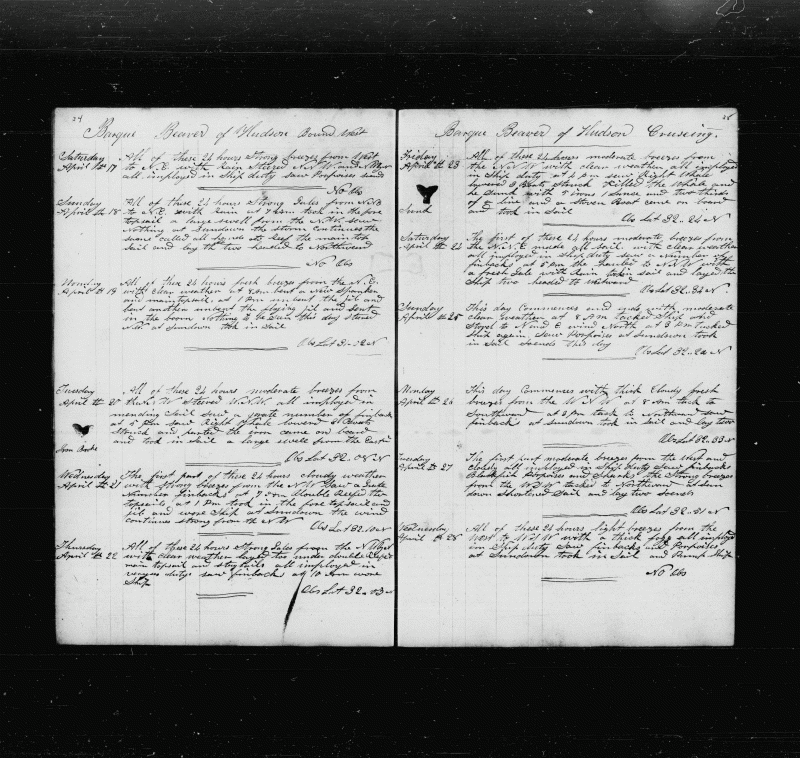 24
Barque Beaver of Hudson Bound West
Saturday All of these 24 hours Strong breezes from West
April th 17 to N.E. with Rain Stered N.W. and
all imployed in Ship duty saw Porpoises
No Obs
Sunday All of these 24 hours Strong Gales from N.N.E
April th 18 to N.E. with Rain at 7 Am took in the fore
topsail a large swell from the N.N.W. saw
Nothing at Sundown the storm continues the
same called all hands to reef the main top
Sail and lay two headed to Northward
No Obs
Monday All of these 24 hours fresh breezes from the N.E.
April th 19 with clear weather at 8 Am bent a New Spanker
and maintopsail at 1 Pm unbent the jib and
bent another unbent the flying jib and sent
in the boom Nothing to be Seen this day Stered
N.W. at Sundown took in Sail
Obs Lat N
Tuesday All of these 24 hours moderate breezes from
April th 20 the W Stered W.N.W. all imployed in
mending Sail Saw a grate number of finback
at 5 Pm saw Right Whale lowered 3 Boats
Struck and parted the iron came on board
and took in Sail a large swell from the East
Iron Broke
Obs Lat 32.04 N
Wednesday The first part of these 24 hours cloudy weather
April th 21 with Strong Breezes from the N.W. Saw a Grate
Number finbacks at 7 Am double Reefed the
topsails at 1 Pm took in the fore topsail and
jib and wore Ship at Sundown the wind
continues strong from the N.W.
Obs Lat 32.10 N
Thursday All of these 24 hours Strong Gales from the N.W.
April th 22 with clear weather layed too under double Reefd
main topsail and staysails all imployed in
various dutys saw finback at 10 Am wore
Ship
Obs Lat 32.03 N
25
Barque Beaver of Hudson Cruseing.
Friday All of these 24 hours moderate breezes from
April th 23 the N.W. with clear weather all imployed
in Ship duty at 4 pm saw Right Whale
lowered 3 Boats Struck Killed the Whale and
he Sunk with 7 irons 1 lance and two thirds
of line and a Stoven Boat came on board
Sunk and took in Sail
Obs Lat 32.24 N
Saturday The first of these 24 hours moderate breezes from
April th 24 the N.N.E. made all sail with clear weather
all imployed in ship duty saw a number
finbacks at 5 pm the to N.W. with
a fresh Gale with Rain takin sail and layed the
Ship two headed to westward
Obs Lat 32.34 N
Sunday This day Commences and ends with moderate
April th 25 clear weather at 8 Am tacked Ship and
to N and E wind North at 3 Pm tacked
Ship again saw Porpoises at Sundown took
in Sail So ends this day
Obs Lat 32.22 N
Monday This day Commences with thick Cloudy fresh
April th 26 breezes from the W.N. at 8 Am tack to
Southward at 2 pm tack to Northward saw
finback at sundown took in sail and lay two
Obs Lat 32.33 N
Tuesday The first part moderate breezes from the West and
April th 27 cloudy all imployed in Ship duty Saw finbacks
Blackfish Porpoises and Sharks the Strong breezes
from the W.S.W. tacked to Northward Sundown
down Shortened Sail and lay two So ends
Obs Lat 32.51 N
Wednesday All of these 24 hours light breezes from the
April th 28 West to W.S.W. with a thick fogg all imployed
in Ship duty Saw finbacks and Porpoises
at Sundown took in Sail and Pump Ship
No Obs